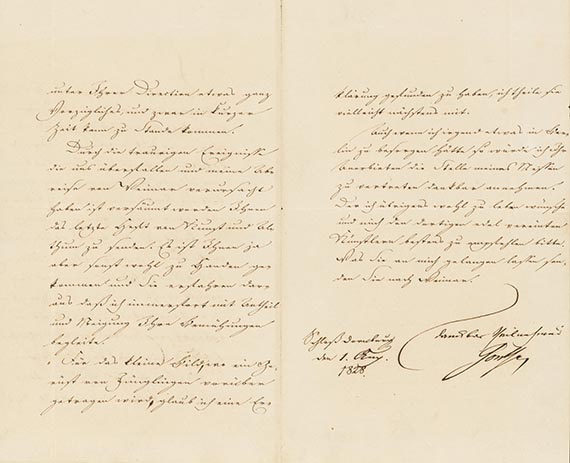 unter Ihrer Direction etwas ganz
Vorzügliches, und zwar in kurzer
Zeit kann zu Stande kommen.
Durch die traurigen Ereignisse
die uns überfallen und meine Ab-
reise von Weimar verursacht
haben ist versäumt worden Ihnen
das letzte Heft von Kunst und Al-
thum zu senden. Es ist Ihnen ja
aber sonst wohl zu Handen ge-
kommen und Sie ersehen dar-
aus daß ich immerfort mit Antheil
und Neigung Ihre Bemühungen
begleite.
Für das kleine Bildchen ein
von Jünglingen vorüber
getragen wird, glaub ich eine Er-
klärung gefunden zu haben, ich theile sie
vielleicht nächstens mit.
Auch wenn ich irgend etwas in Ber-
lin zu besorgen hätte so würde ich Ihr
Anerbieten die Stelle meines Neffen
zu vertreten dankbar annehmen.
Der ich übrigens wohl zu leben wünsche
und mich den dortigen edel vereinten
Künstlern bestens zu empfehlen bitte.
Was Sie an mich gelangen lassen sen-
den Sie nach Weimar.
Schloß Dornburg
den 1. Aug.
1828.
dankbar theilnehmend
Goethe